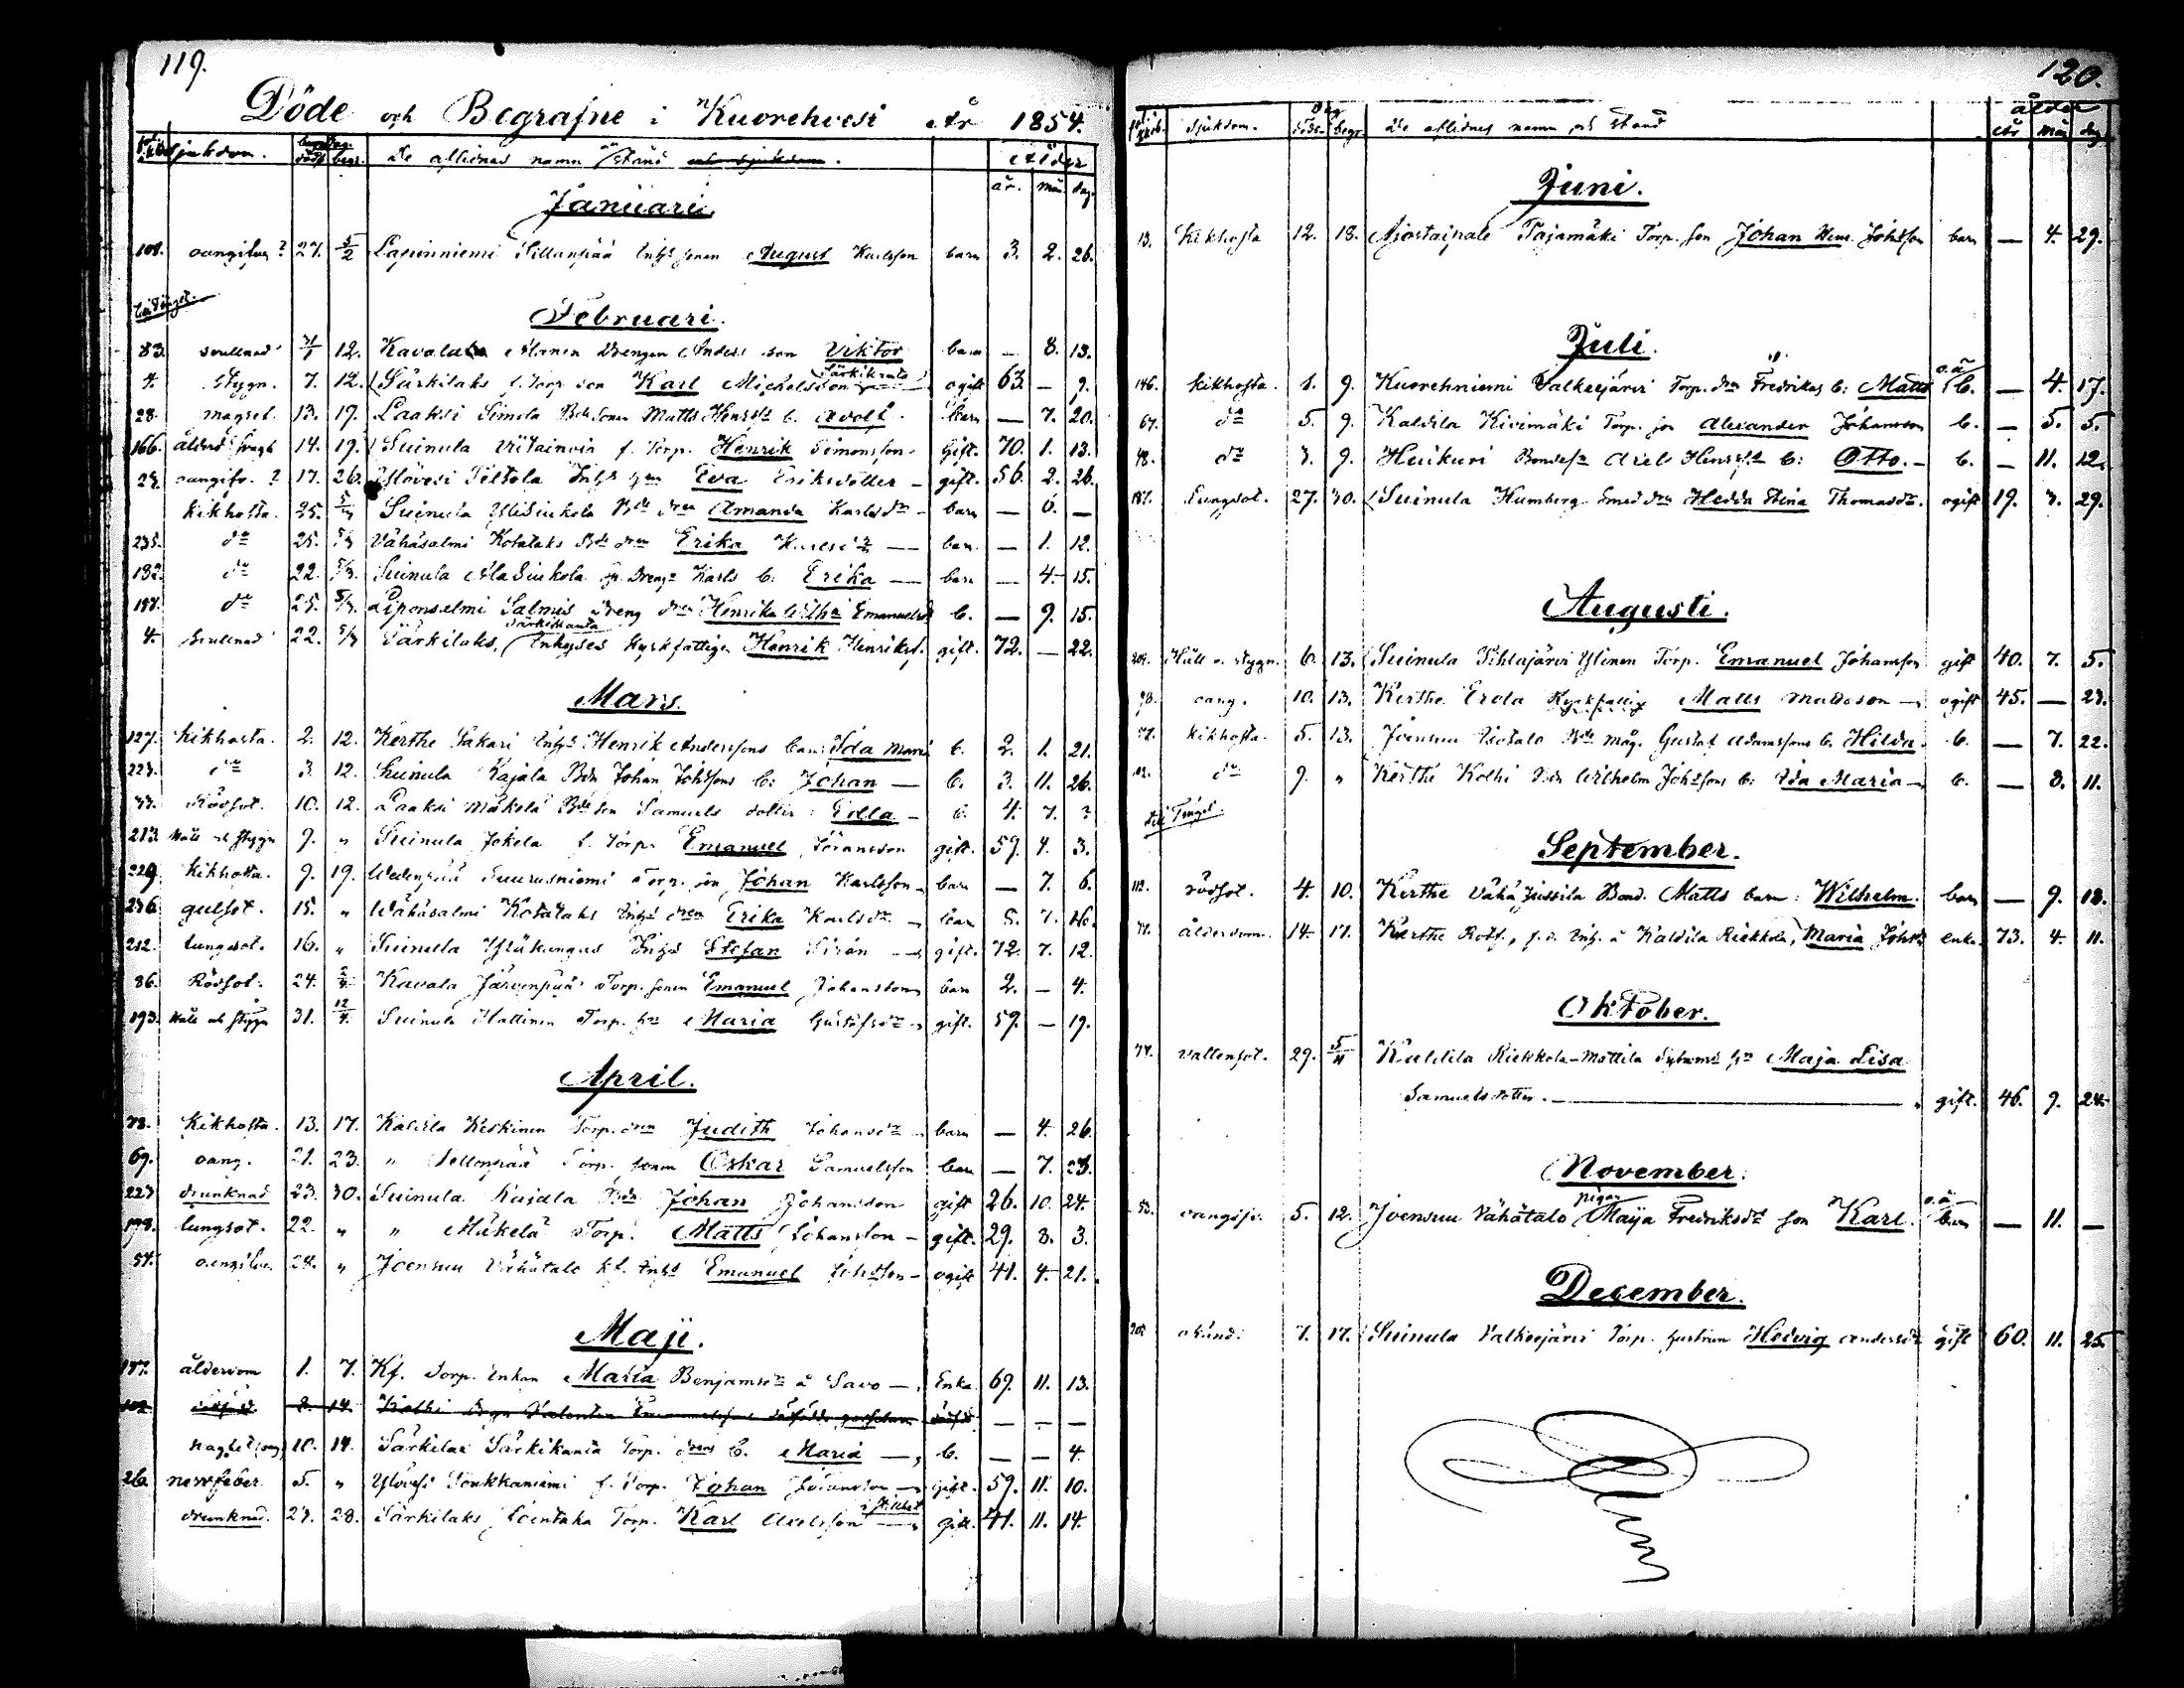 119.
Döde och Begrafne i Kuorehvesi År 1854.
sjukdom. död begr. De aflidnas namn och stånd Ålder
år. mån dag.
Januari
108. oangifven? 27. 5/2 Lapinniemi Sillanpää Inhs sonen August Karlsson barn 3. 2. 26.
Februari.
83. svullnad 31/1 12. Kavala Manen Drengen Anders son Viktor barn — 8. 13.
4. Stygn. 7. 12. Särkilaks f. Torp. son Karl Michelsson ogift 63. — 9.
28. magset. 13. 19. Laaksi Simola Bde sonen Matts Henrss b. Adolf barn — 7. 20.
166. 14. 19. Suinula Viitainoja f. Torp. Henrik Simonsson gift. 70. 1. 13.
oangifv. ? 17. 26. Ylövesi Peltola Inhs hu Eva Eriksdotter — gift. 56. 2. 26.
kikhosta. 25. 5/3 Suinula YliSiukola Bde dren Amanda Karlsdr barn — 6. —
235. do 25. 5/3 Vähäsalmi Kotalaks Bde dren Erika Karlsdr — barn — 1. 12.
182. do 22. 5/3. Suinula AlaSiukola Drengs Karls b. Erika — barn — 4. 15.
do 25. 5/3. Liponselmi Salmis dreng dren Henrika Wilha Emanuelsd b. — 9. 15.
4. Svullnad 22. 5/3 Särkilaks, Särkikanta Inhyses Kyrkfattige Henrik Henriks. gift. 72. — 22.
Mars.
127. Kikhosta. 2. 12. Kerthe Sakari Inhs Henrik Anderssons barn Ida Maria b. 2. 1. 21.
223. do 3. 12. Suinula Kajala Bdn Johan Johssons b: Johan — b. 3. 11. 26.
Rödsot. 10. 12. Laaksi Mäkelä Bde son Samuels dotter: Edla — b. 4. 7. ?
213. Håll och Stygn 9. " Suinula Jokela f. Torp. Emanuel Göransson gift. 59. 4. 3.
229. Kikhosta. 9. 19. Wedenpää Suuruuniemi Torp. son Johan Karlsson barn — 7. 6.
236. gulsot. 15. " Wähäsalmi Kotalaks Inhs dren Erika Karlsdr — barn 5. 7. 16.
212. lungsot. 16. " Suinula Yliskungas Inhs Stefan — gift. 72. 7. 12.
86. Rödsot. 24. 2/4 Kavala Järvenpää Torp. sonen Emanuel Johansson barn 2. — 4.
193. Håll och stygn 31. 12/4. Suinula Hallinen Torp. hu Maria Gustafsdr gift. 59. — 19.
April.
78. Kikhosta. 13. 17. Kaldila Keskinen Torp. dren Judith Johansdr — barn — 4. 26.
69. oang. 21. 23. " Sellonpää Torp. sonen Oskar Samuelsson barn — 7. 23.
223 drunknad 23. 30. Suinula Kajala Bdn Johan Johansson gift 26. 10. 24.
198. lungsot. 22. " " Mäkelä Torp. Matts Johansson — gift. 29. 8. 3.
54. oangifven 28. " Joensuu Vähätalo kf. Inhs Emanuel Johsson — ogift 41. 4. 21.
Maji.
187. ålderdom 1. 7. Kf. Torp. Enkan Maria Benjamsdr å Savo — Enka 69. 11. 13.
8. 14. Kolhi — — —
10. 14. Särkilax Särkikanta Torp. drens b. Maria — b. — — 4.
26. nervfeber. 5. " Ylövesi Koukkuniemi f. Torp. Johan Johansson — gift. 59. 11. 10.
drunknad. 23. 28. Särkilaks Lointaka Torp. Karl Axelsson — gift. 41. 11. 14.
120.
sjukdom. död. begr. De aflidnes namn och stånd ålder
år mån dag
Juni.
13. Kikhosta 12. 18. Ajostaipale Pajamäki Torp. son Johan Henr. Johsson barn — 4. 29.
Juli.
146. kikhosta. 1. 9. Kuorehniemi Valkeejärvi Torp. drn Fredrikas b: Matts o.ä. b. — 4. 17.
67. do 5. 9. Kaldila Kivimäki Torp. son Alexander Johansson b. — 5. 5.
48. do 3. 9. Huikuri Bondess Axel Henrss b: Otto. — b. — 11. 12.
187. Lungsot. 27. 30. Suinula Humberg Smed drn Hedda Stina Thomasdr. ogift 19. 3. 29.
Augusti.
Håll o. stygn. 6. 13. Suinula Pihlajärvi Ylinen Torp. Emanuel Johansson gift 40. 7. 5.
98. oang. 10. 13. Kerthe Erola Kyrkfattig Matts Mattsson — ogift 45. — 23.
kikhosta. 5. 13. Joensuu Isotalo Bde måg. Gustaf Adamssons b. Hilda. b. — 7. 22.
do 9. " Kerthe Kolhi Bdn Wilhelm Johssons b: Ida Maria — b. — 8. 11.
till Tinget.
September.
112. rödsot. 4. 10. Kerthe Vähä Jussila Bond. Matts barn: Wilhelm. barn — 9. 18.
77. ålderdom. 14. 17. Kerthe Rotf., f. d. Inh. å Kaldila Riekkola, Maria Johsdr enka. 73. 4. 11.
Oktober.
77. vattensot. 29. 5/11 Kaldila Riekkola-Mattila Sytnings hu Maja Lisa
Samuelsdotter. — gift. 46. 9. 24.
November.
53. oangifv. 5. 12. Joensuu Vähätalo pigan Maija Fredriksdr son Karl. o.ä. barn — 11. —
December.
okänd. 7. 17. Suinula Valkeejärvi Torp. hustrun Hedvig Andersdr gift 60. 11. 25.